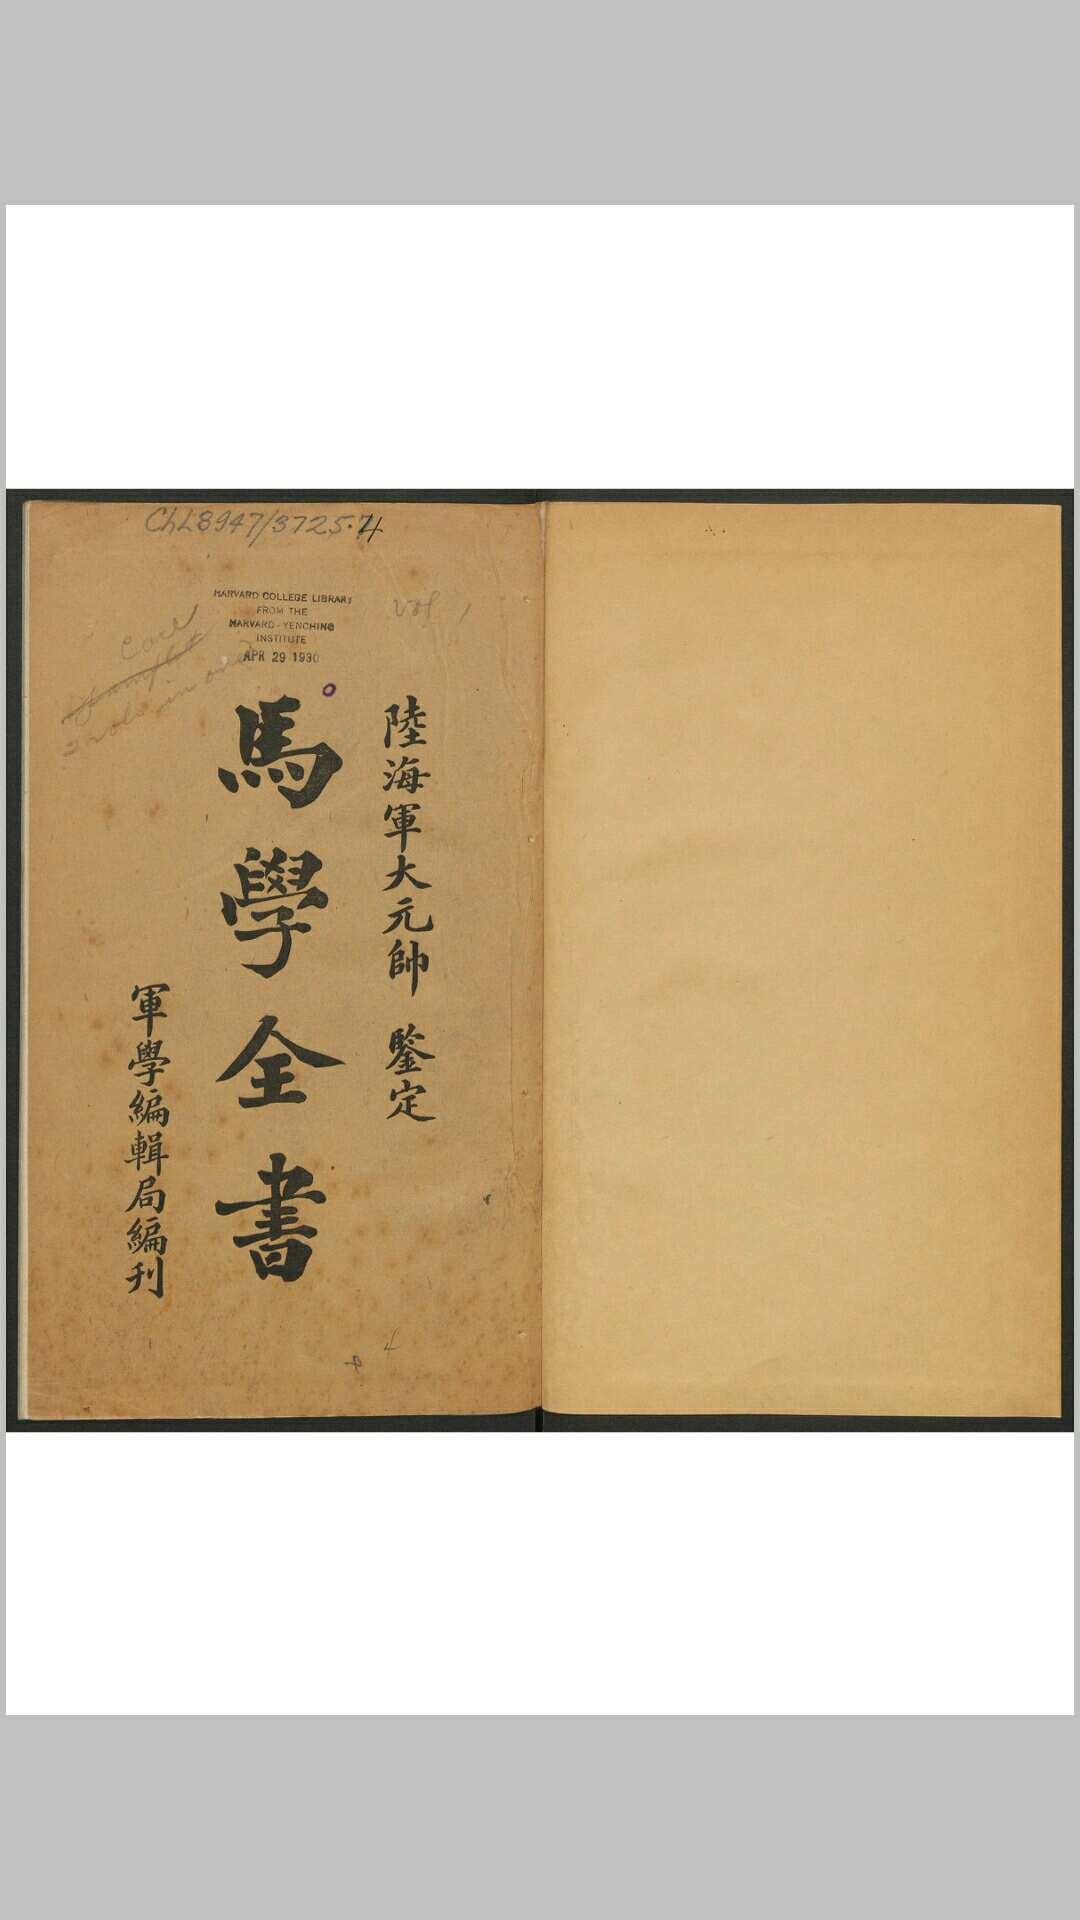 ChL8947/3725.4
HARVARD COLLEGE LIBRARY
FROM THE
HARVARD-YENCHING
INSTITUTE
APR 29 1930
Vol 1
陸海軍大元帥 鑒定
馬學全書
軍學編輯局編刊